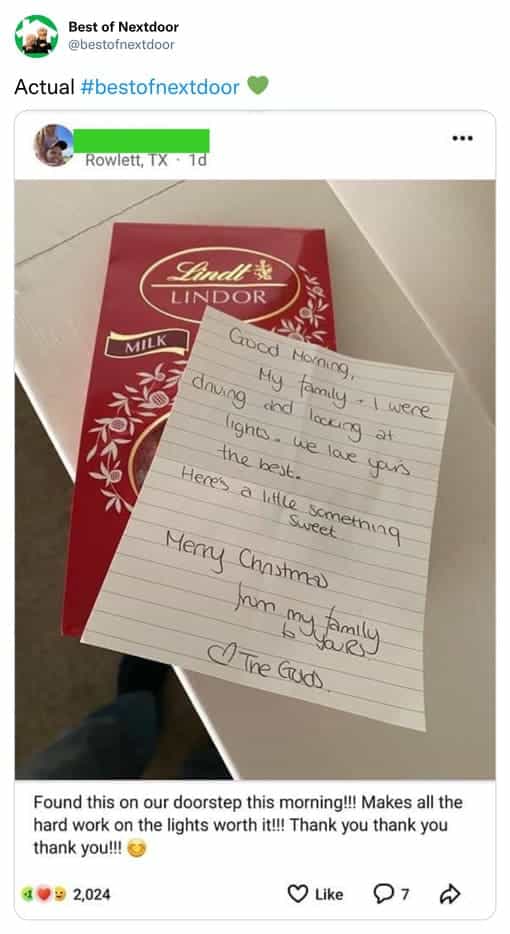 Best of Nextdoor
@bestofnextdoor
Actual #bestofnextdoor 💚
Rowlett, TX · 1d
Lindt
LINDOR
MILK
Good Morning,
My family + I were
driving and looking at
lights. we love yours
the best.
Here's a little something
sweet
Merry Christmas
from my family
to yours.
♡ The Guds.
Found this on our doorstep this morning!!! Makes all the
hard work on the lights worth it!!! Thank you thank you
thank you!!! 😊
2,024
Like
7